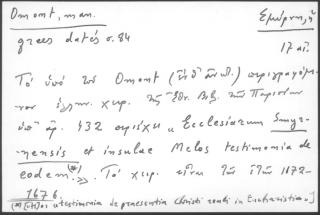 Omont, man. Σμύρνη, ἡ
grecs datés σ. 84
17 αἰ.
Τό ὑπό τοῦ Omont (ἔνθ' ἀνωτ.) περιγραφόμε-
νον ἑλλην. χειρ. τῆς Ἐθν. Βιβ. τῶν Παρισίων
ὑπ' ἀρ. 432 περιέχει „Ecclesiarum Smyr-
nensis et insulae Melos testimonia de
eodem (*)». Τό χειρ. εἶναι τῶν ἐτῶν 1672-
1676.
(*) testimonia de praesentia Christi reali in Eucharistia